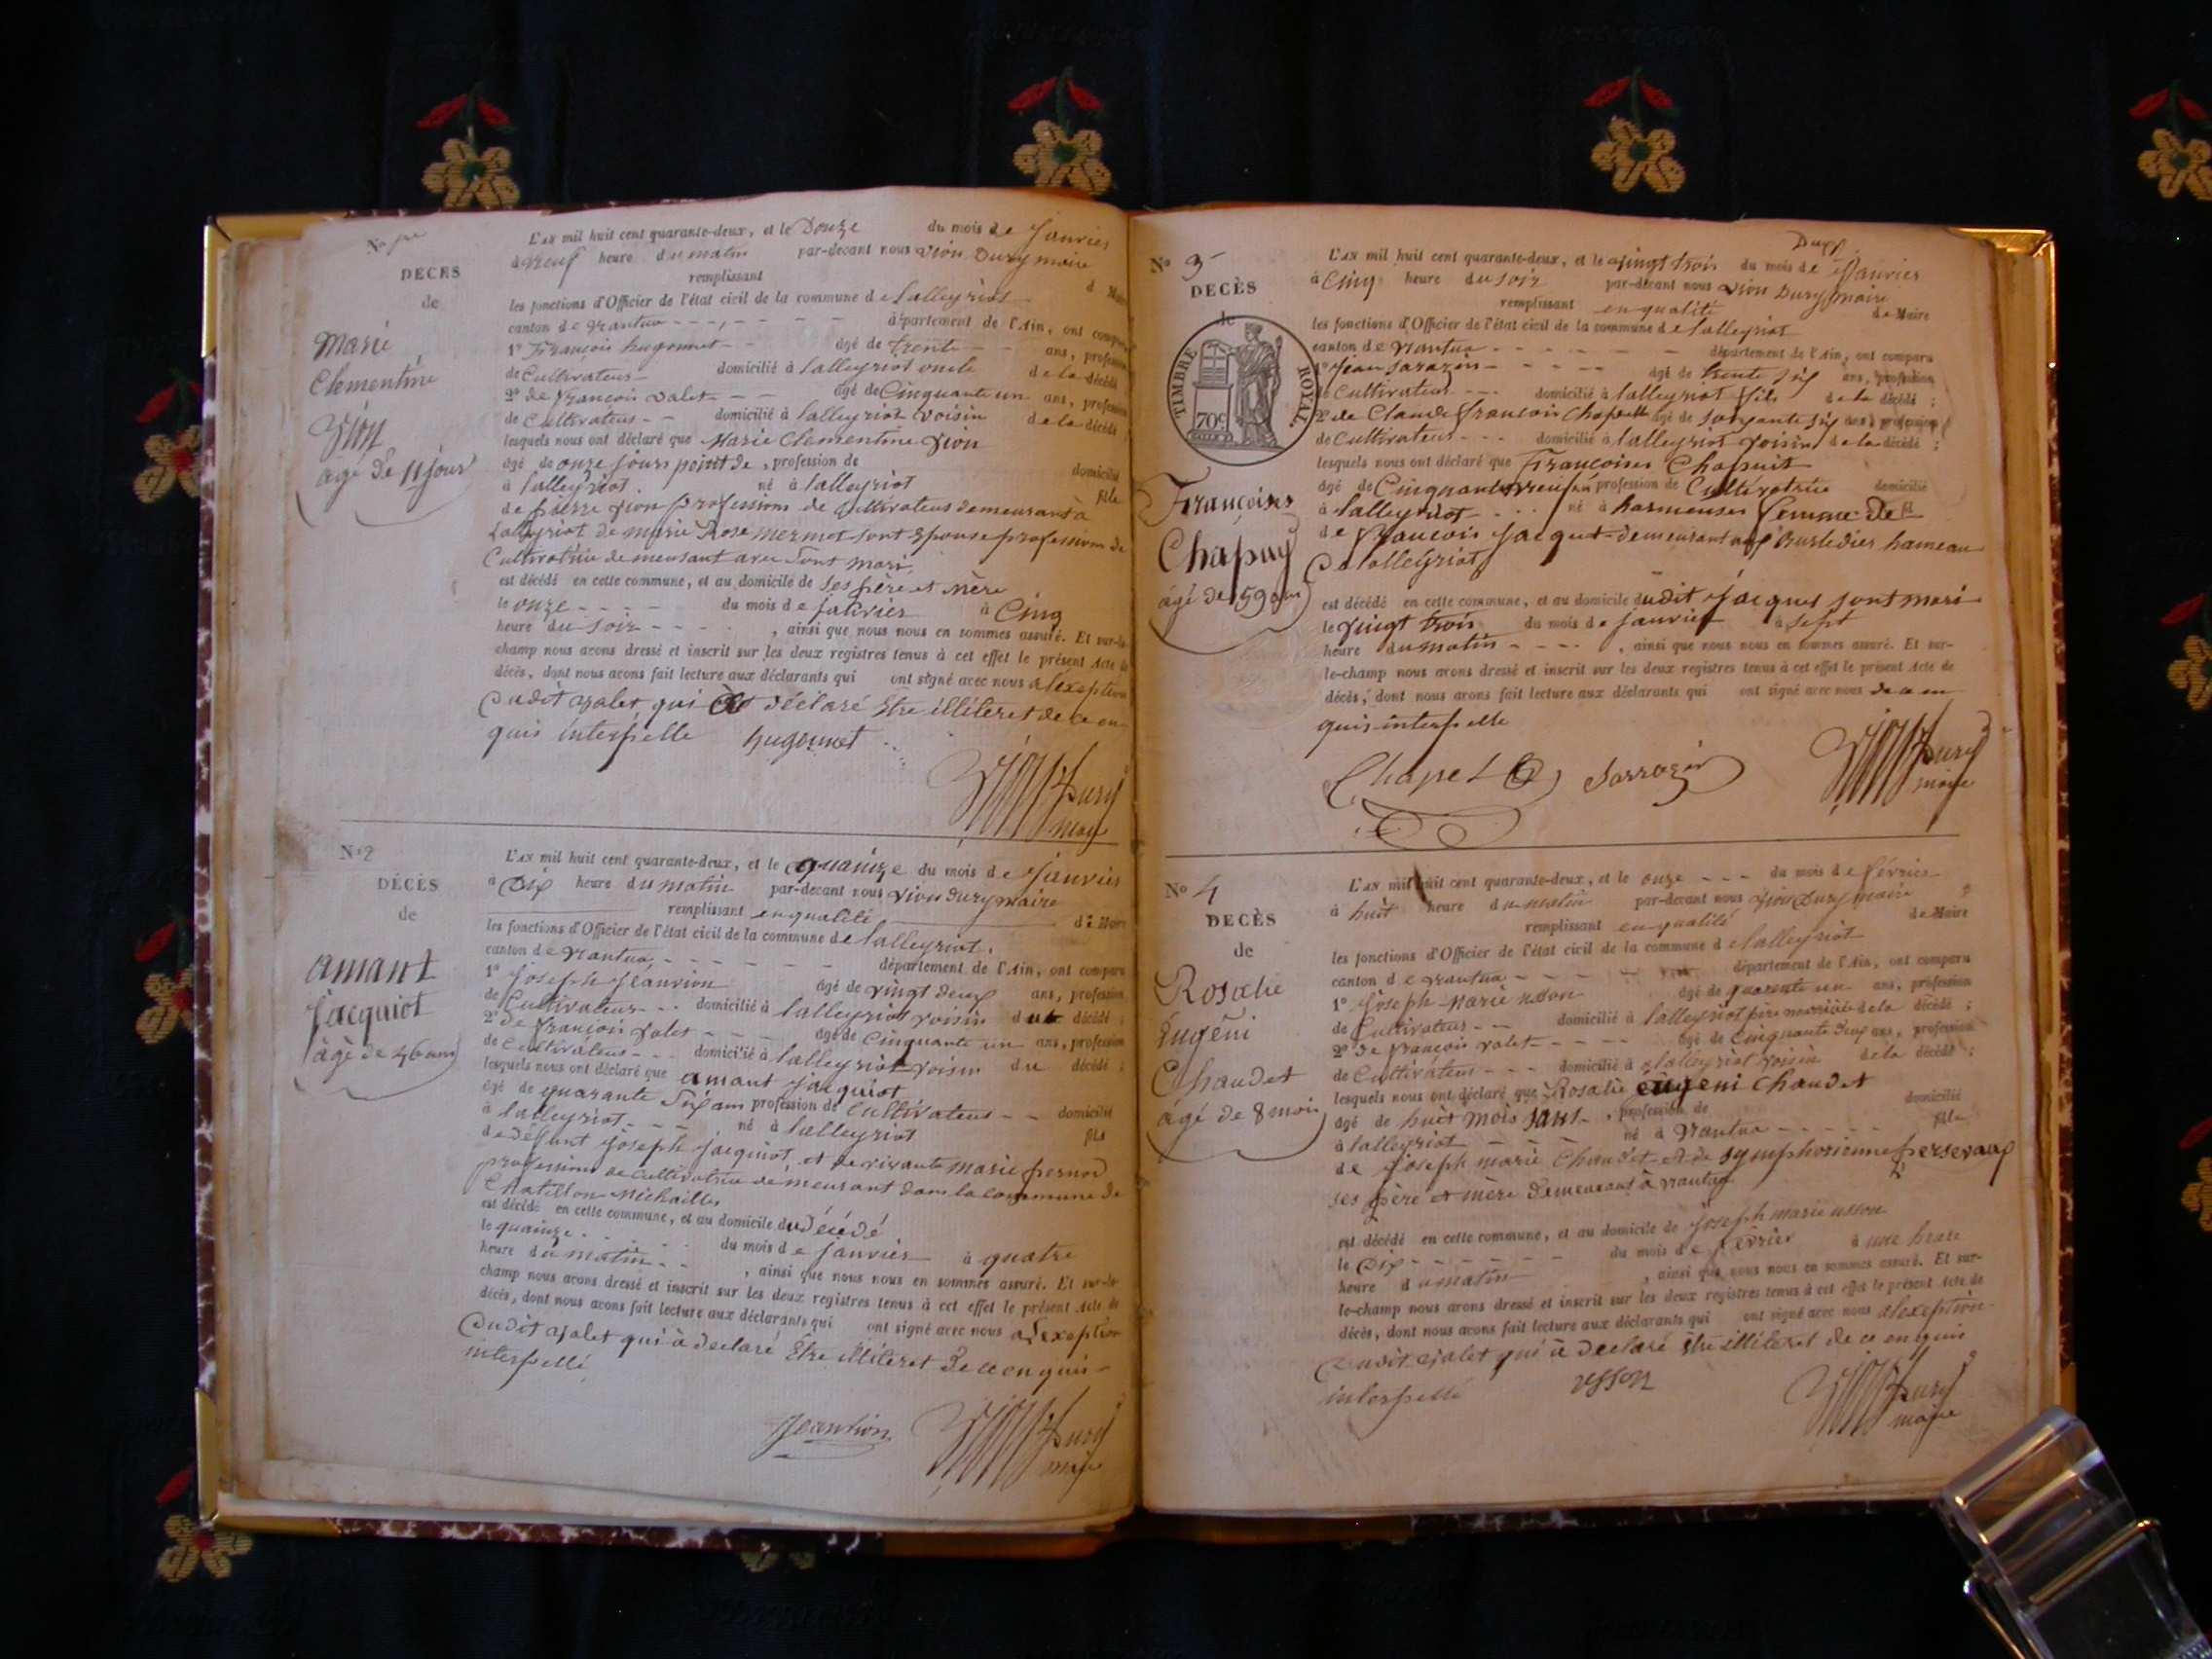 No 1er
L'AN mil huit cent quarante-deux, et le Douze du mois de janvier
DECES
à neuf heure du matin par-devant nous Vion Dury maire
remplissant d Maire
de
les fonctions d'Officier de l'état civil de la commune de lalleyriat
canton de nantua département de l'Ain, ont comparu
Marie
Clementine
Vion
âgé de 11 jour
1° François hugonnet âgé de trente ans, profession
de Cultivateur domicilié à lalleyriat oncle de la décédé
2° de françois valet âgé de Cinquante un ans, profession
de Cultivateur domicilié à lalleyriat voisin de la décédé
lesquels nous ont déclaré que Marie Clementine Vion
âgé de onze jours point de, profession de domicilié
à lalleyriat né à lalleyriat fille
de pierre Vion profession de cultivateur demeurant à
Lalleyriat de marie Rose mermet sont Epouse profession de
Cultivatrice demeurant avec sont mari
est décédé en cette commune, et au domicile de ses père et mère
le onze du mois de janvier à Cinq
heure du soir, ainsi que nous nous en sommes assuré. Et sur-le-
champ nous avons dressé et inscrit sur les deux registres tenus à cet effet le présent Acte de
décès, dont nous avons fait lecture aux déclarants qui ont signé avec nous alexeption
Dudit valet qui a déclaré Etre illiteret de ce en
quis interpelle hugonnet
Vion Dury
maire
No 2
L'AN mil huit cent quarante-deux, et le quainze du mois de janvier
DÉCÈS
à Dix heure du matin par-devant nous vion Dury maire
de
remplissant enqualité de Maire
les fonctions d'Officier de l'état civil de la commune de lalleyriat.
canton de nantua département de l'Ain, ont comparu
amant
jacquiot
âgé de 46 ans
1° joseph jeantion âgé de vingt deux ans, profession
de Cultivateur domicilié à lalleyriat voisin du décédé;
2° de françois valet âgé de Cinquante un ans, profession
de Cultivateur domicilié à lalleyriat voisin du décédé;
lesquels nous ont déclaré que amant jacquiot
âgé de quarante six ans profession de Cultivateur domicilié
à lalleyriat né à lalleyriat fils
de défunt joseph jacquiot, et de vivante marie
profession de Cultivatrice demeurant dans la commune de
Chatillon Michailles
est décédé en cette commune, et au domicile du décédé
le quainze du mois de janvier à quatre
heure du matin, ainsi que nous nous en sommes assuré. Et sur-le-
champ nous avons dressé et inscrit sur les deux registres tenus à cet effet le présent Acte de
décès, dont nous avons fait lecture aux déclarants qui ont signé avec nous alexeption
Dudit valet qui à declaré Etre illiteret De ce en quis
interpellé
Jeantion Vion Dury
maire
Dury
No 3
L'AN mil huit cent quarante-deux, et le vingt trois du mois de janvier
DECÈS
à Cinq heure du soir par-devant nous Vion Dury maire
de
remplissant en qualité de Maire
TIMBRE ROYAL
70c
les fonctions d'Officier de l'état civil de la commune de lalleyriat
canton de nantua département de l'Ain, ont comparu
1° jean sarazin âgé de trente six ans, profession
de Cultivateur domicilié à lalleyriat fils de la décédé;
2° de Claude françois Chapelle âgé de soixante six ans, profession
de Cultivateur domicilié à lalleyriat voisin de la décédé;
lesquels nous ont déclaré que Françoises Chapuit
Françoises
Chapuy
âgé de 59 ans
âgé de Cinquante neuf an profession de Cultivatrice domicilié
à lalleyriat né à harmenses femme De
de françois jacquet demeurant hameau
De lalleyriat
est décédé en cette commune, et au domicile dudit jacques sont mari
le vingt trois du mois de janvier à sept
heure du matin, ainsi que nous nous en sommes assuré. Et sur-
le-champ nous avons dressé et inscrit sur les deux registres tenus à cet effet le présent Acte de
décès, dont nous avons fait lecture aux déclarants qui ont signé avec nous de ce en
quis interpelle
Chapel Sarrazin Vion Dury
maire
No 4
L'AN mil huit cent quarante-deux, et le onze du mois de février
DECÈS
à huit heure du matin par-devant nous vion Dury maire
de
remplissant en qualité de Maire
les fonctions d'Officier de l'état civil de la commune de lalleyriat
canton de nantua département de l'Ain, ont comparu
Rosalie
Eugêni
Chaudet
âgé de 8 mois
1° joseph Marie usson âgé de quarente un ans, profession
de Cultivateur domicilié à lalleyriat père de la décédé;
2° de françois valet âgé de Cinquante Deux ans, profession
de Cultivateur domicilié à lalleyriat voisin de la décédé;
lesquels nous ont déclaré que Rosalie eugeni Chaudet
âgé de huit mois sans, profession de domicilié
à lalleyriat né à nantua fille
de joseph marie Chaudet et de symphorienne
ses père et mère demeurant à nantua
est décédé en cette commune, et au domicile de joseph marie usson
le Dix du mois de fevrier à une heure
heure du matin, ainsi que nous nous en sommes assuré. Et sur-
le-champ nous avons dressé et inscrit sur les deux registres tenus à cet effet le présent Acte de
décès, dont nous avons fait lecture aux déclarants qui ont signé avec nous alexeption
Dudit valet qui à declaré être illiteret de ce en quis
interpellé usson Vion Dury
maire